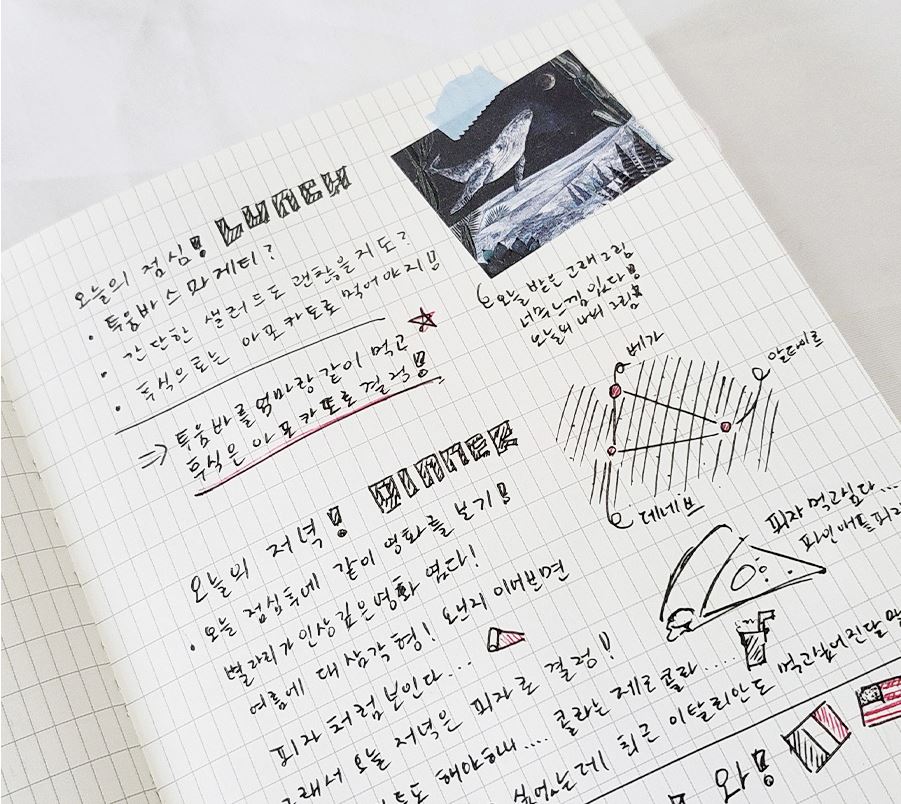 오늘의 점심! LUNCH
• 투움바 스파게티?
• 간단한 샐러드도 괜찮을지도?
• 후식으로는 아포카토로 먹어야지!!
⇒ 투움바를 엄마랑 같이 먹고
후식은 아포카토로 결정!!
오늘 받은 고래 그림
너무 느낌 있다!!
오늘의 내 그림
베가
알타이르
데네브
오늘의 저녁! DINNER
• 오늘 점심후에 같이 영화를 보기!
별자리가 인상깊은 영화 였다!
여름에 대삼각형! 오브지 이어보면
피자 처럼 보인다...
그래서 오늘 저녁은 피자로 결정!!
도 해야하니.... 콜라는 제로 콜라....
피자 먹고싶다...
파인애플피자
는데 최근 이탈리안도 먹고싶어진달